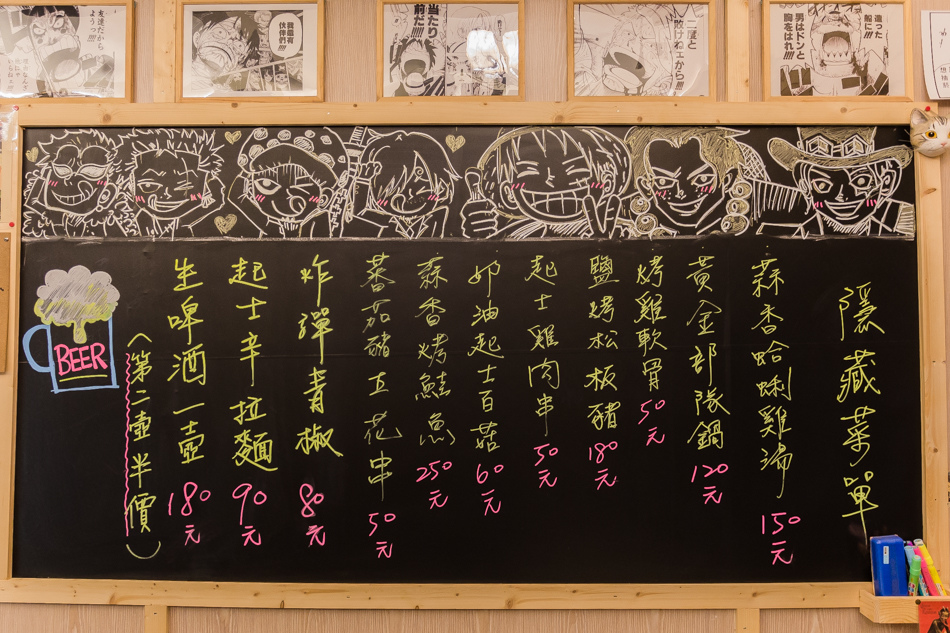 友達だから
よう!!!
我最有
伙伴們!!!
当たり
前だ!!!
二度と
敗けねェから!!!
造った
船に!!!
男はドンと
胸をはれ!!!!
隱藏菜單
蒜香蛤蜊雞湯 150元
黃金部隊鍋 120元
烤雞軟骨 50元
鹽烤松板豬 180元
起士雞肉串 50元
奶油起士百菇 60元
蒜香烤鮭魚 250元
蕃茄豬五花串 50元
炸彈青椒 80元
起士辛拉麵 90元
生啤酒一壺 180元
(第二壺半價)
BEER